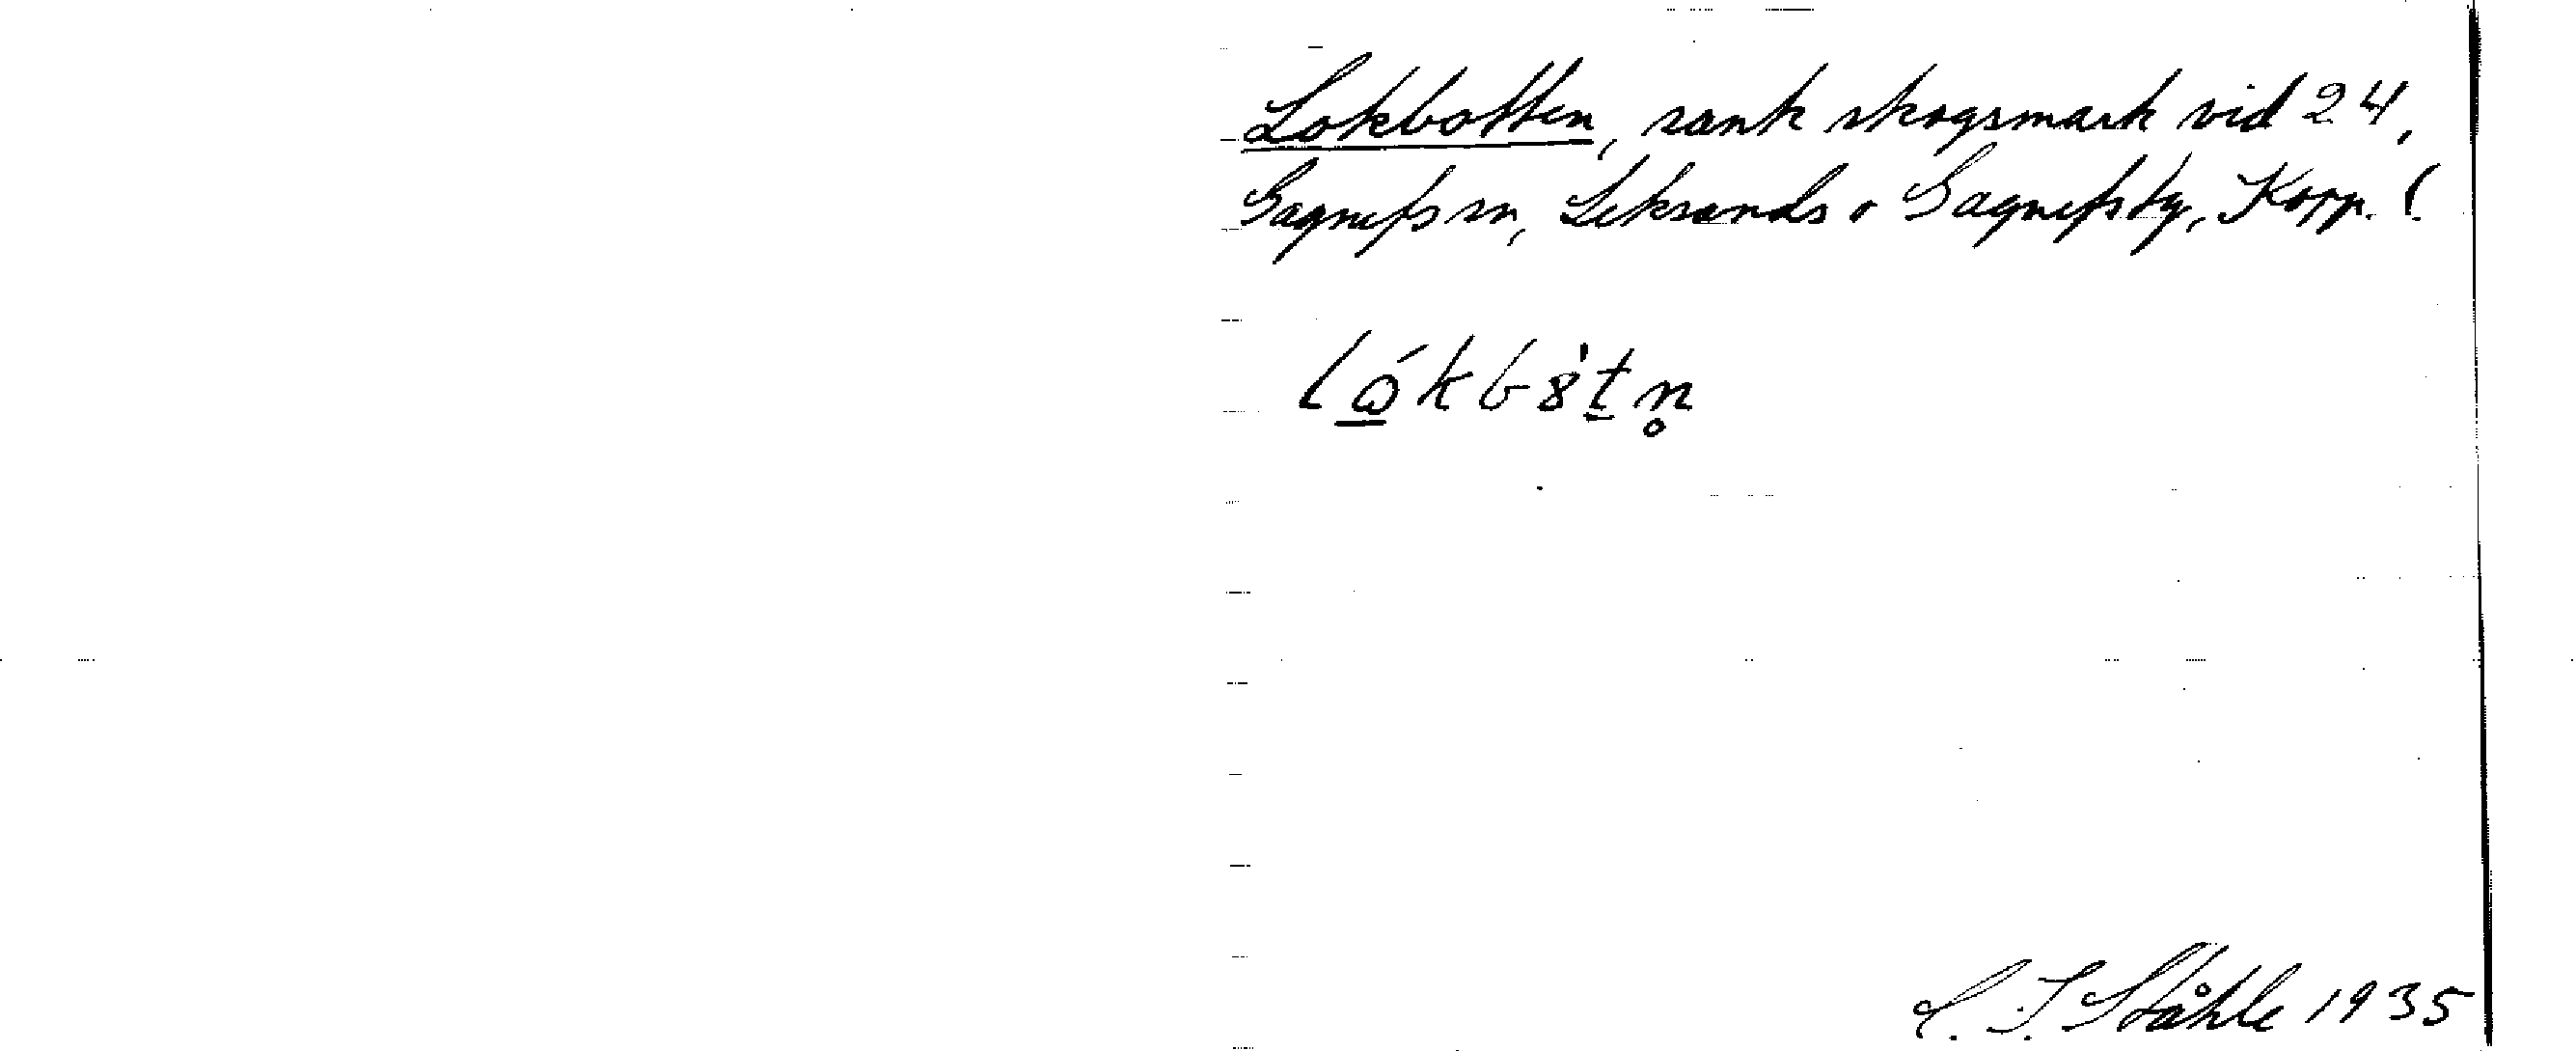 Lokbotten, sank skogsmark vid 24,
Gagnefs sn, Leksands o Gagnefs tg, Kopp. l.
lǫ́kb8̀tn̥
C. I. Ståhle 1935